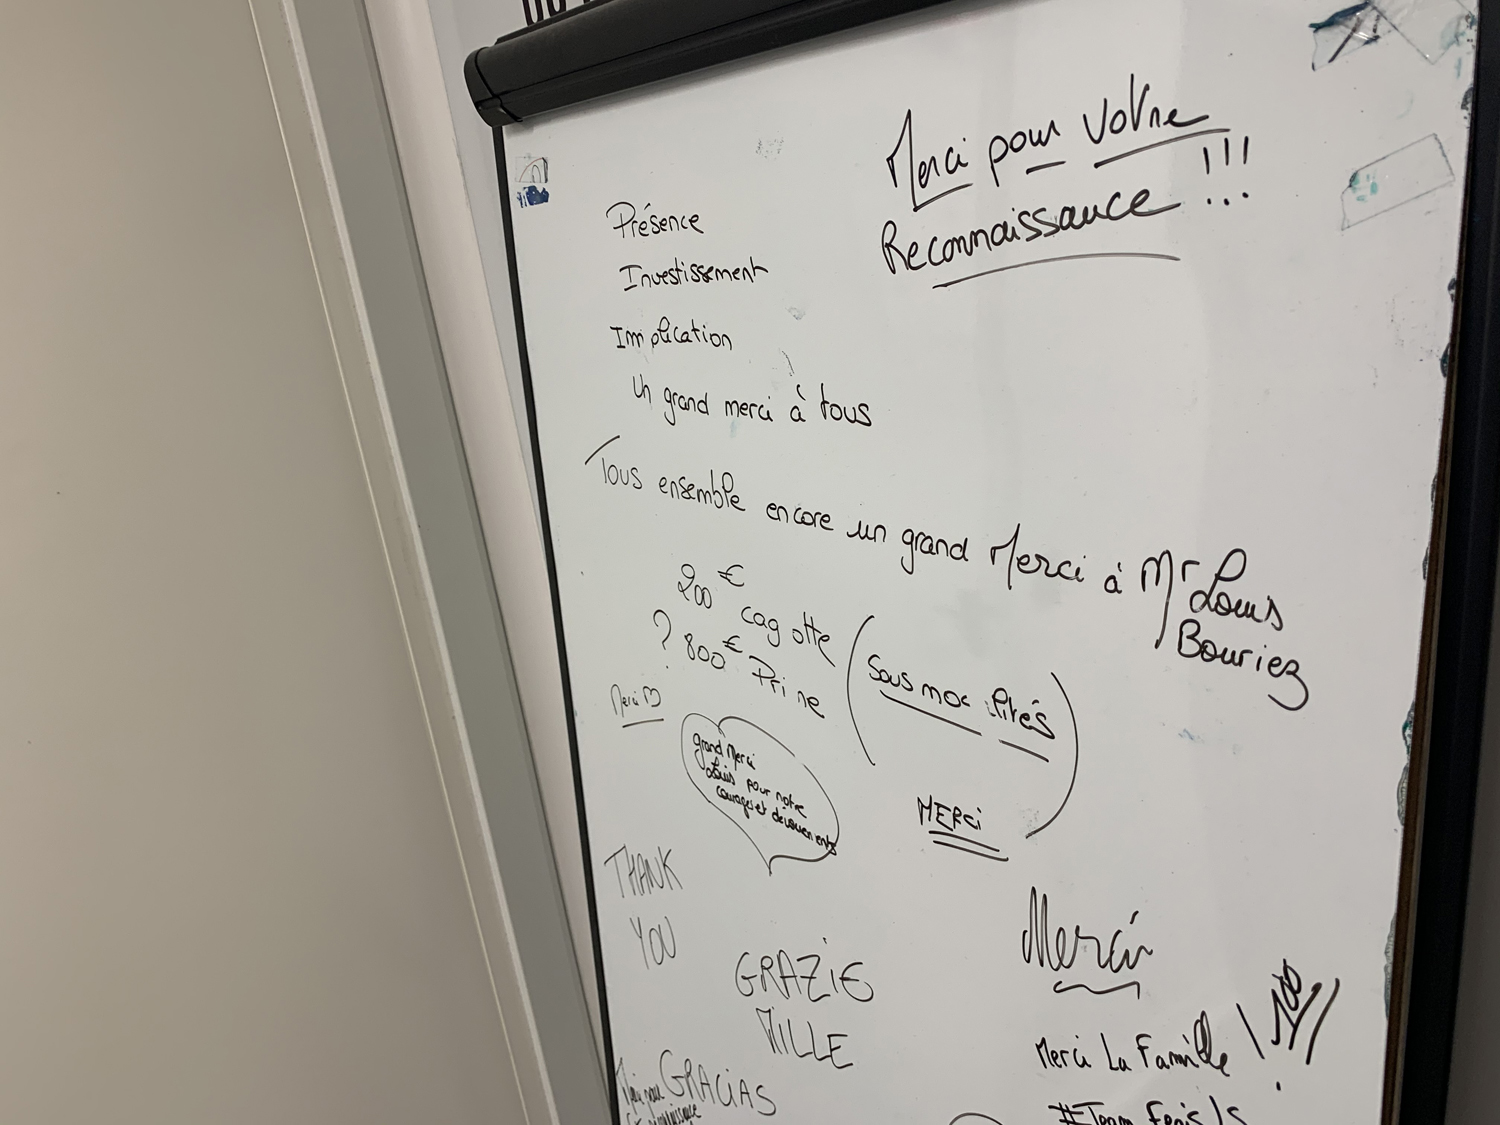 Merci pour votre
Reconnaissance !!!
Présence
Investissement
Implication
Un grand merci à tous
Tous ensemble encore un grand Merci à Mr Louis
Bouriez
200 € cagotte
? 800 € Prime
(Sous modalités)
Merci ♡
grand Merci
Louis pour notre
courages et dévouements
MERCi
THANK
YOU
GRAZiE
MILLE
Merci
Merci La Famille ! 100
GRACiAS
Merci pour
#Team